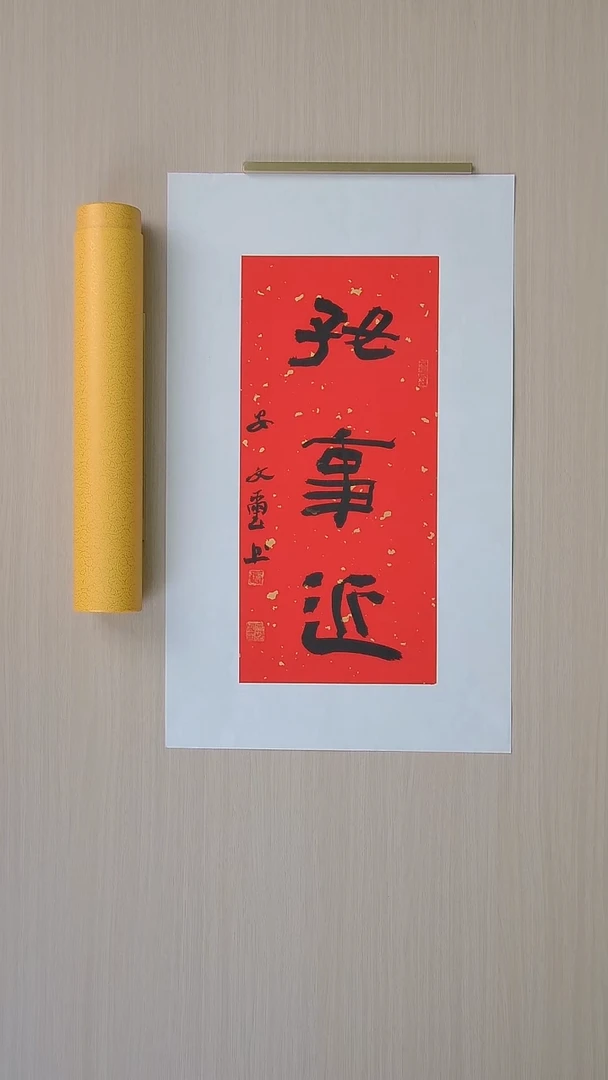 好事近
安文璽上